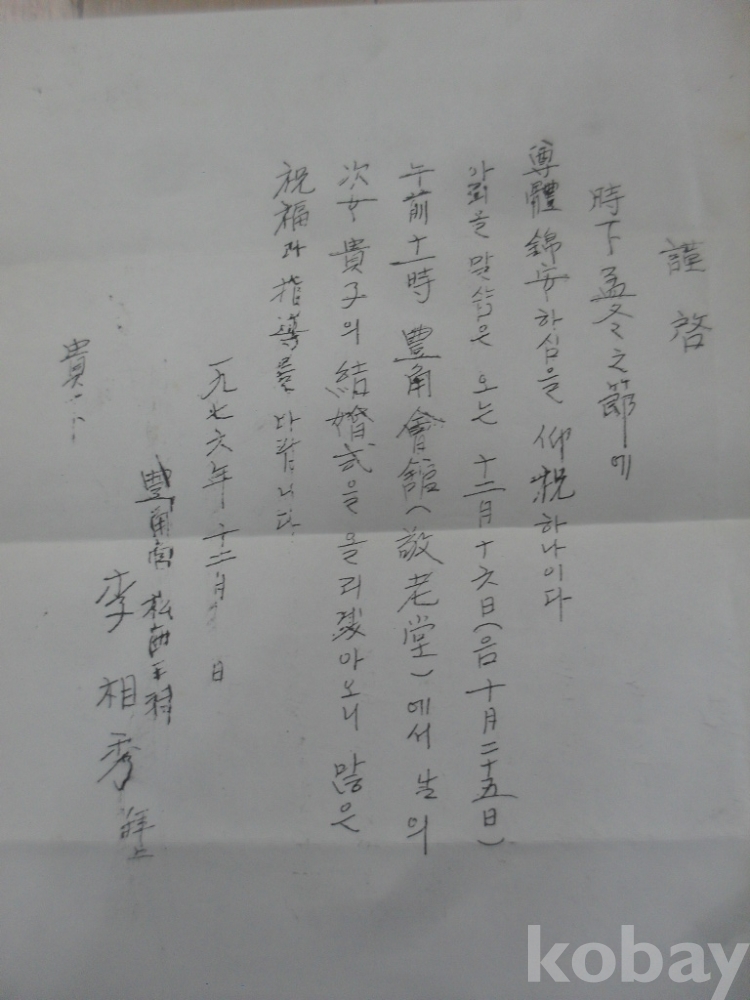 謹啓
時下孟冬之節에
尊體錦安하심을 仰祝하나이다
아뢰올 말씀은 오는 十二月十六日(음十月二十五日)
午前十一時 豊角會館(敬老堂)에서 날의
次女 貴子의 結婚式을 올리겠아오니 많은
祝福과 指導를 바랍니다
一九七六年 十二月 日
豊角面 松西王村
李相秀 拜上
貴下
kobay